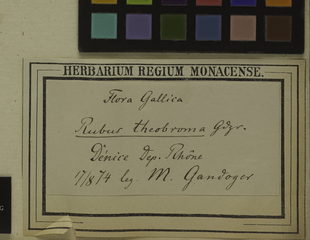 HERBARIUM REGIUM MONACENSE.
Flora Gallica
Rubus theobroma Gdgr.
Dénice Dep. Rhône
17/8 74 leg. M. Gandoger
G